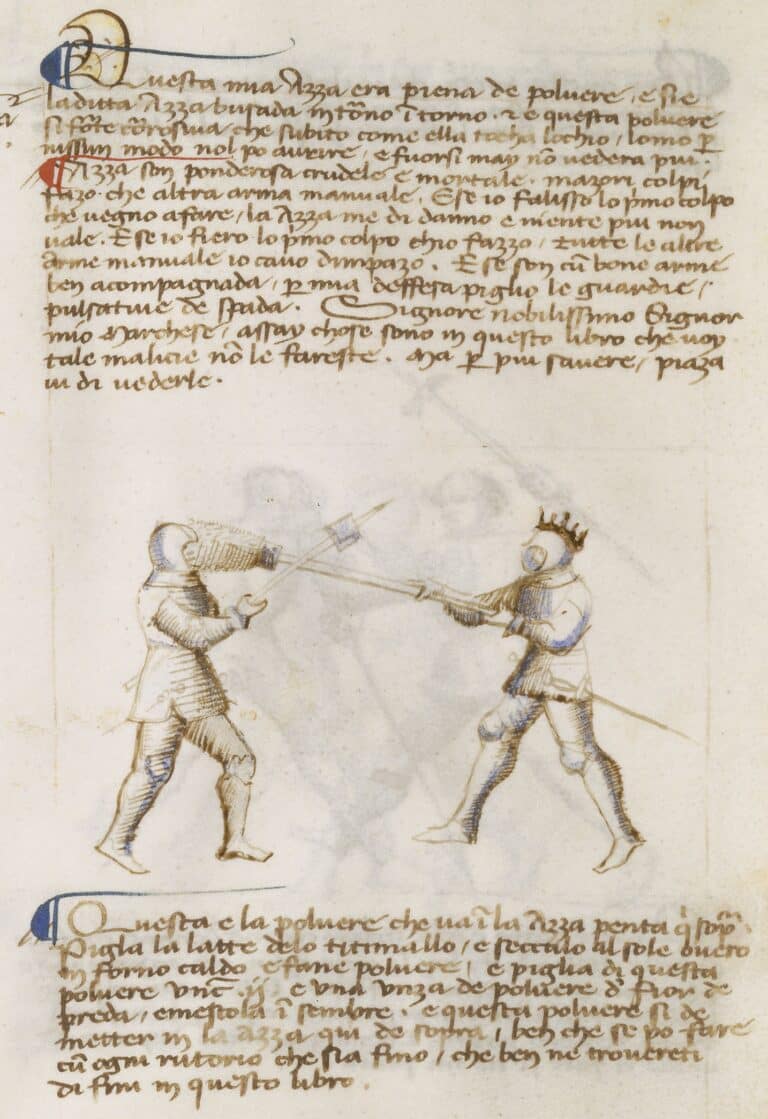 Questa mia Azza era piena de polvere, e si e
la ditta Azza busada intorno intorno. E e questa polvere
si forte corrosiva che subito come ella tocha lochio, lomo per
nissun modo nol po avrire, e fuorsi may non vedera piu.
Azza son ponderosa crudele e mortale. mazori colpi
fazo che altra arma manuale. E se io falisso lo primo colpo
che vegno a fare, la Azza me di danno e niente piu non
vale. E se io fiero lo primo colpo ch'io fazzo, tutte le altre
arme manuale io cavo d'impazo. E se son cum bone arme
ben acompagnada, per mia deffesa piglio le guardie,
pulsative de spada. Signore nobilissimo Signor
mio Marchese, assay chose sono in questo libro che voy
tale malicie non le fareste. Ma per piu savere, piaza
vi di vederle.
Questa e la polvere che va in la Azza penta qui sopra
Pigla la latte delo titimallo, e seccalo al sole overo
in forno caldo e fane polvere, e piglia di questa
polvere unc. ij. e una unza de polvere de Fior de
preda, e mescola insembre. e questa polvere si de
metter in la azza qui de sopra, ben che se po fare
cum ogni rutorio che sia fino, che ben ne trovereti
di fini in questo libro.